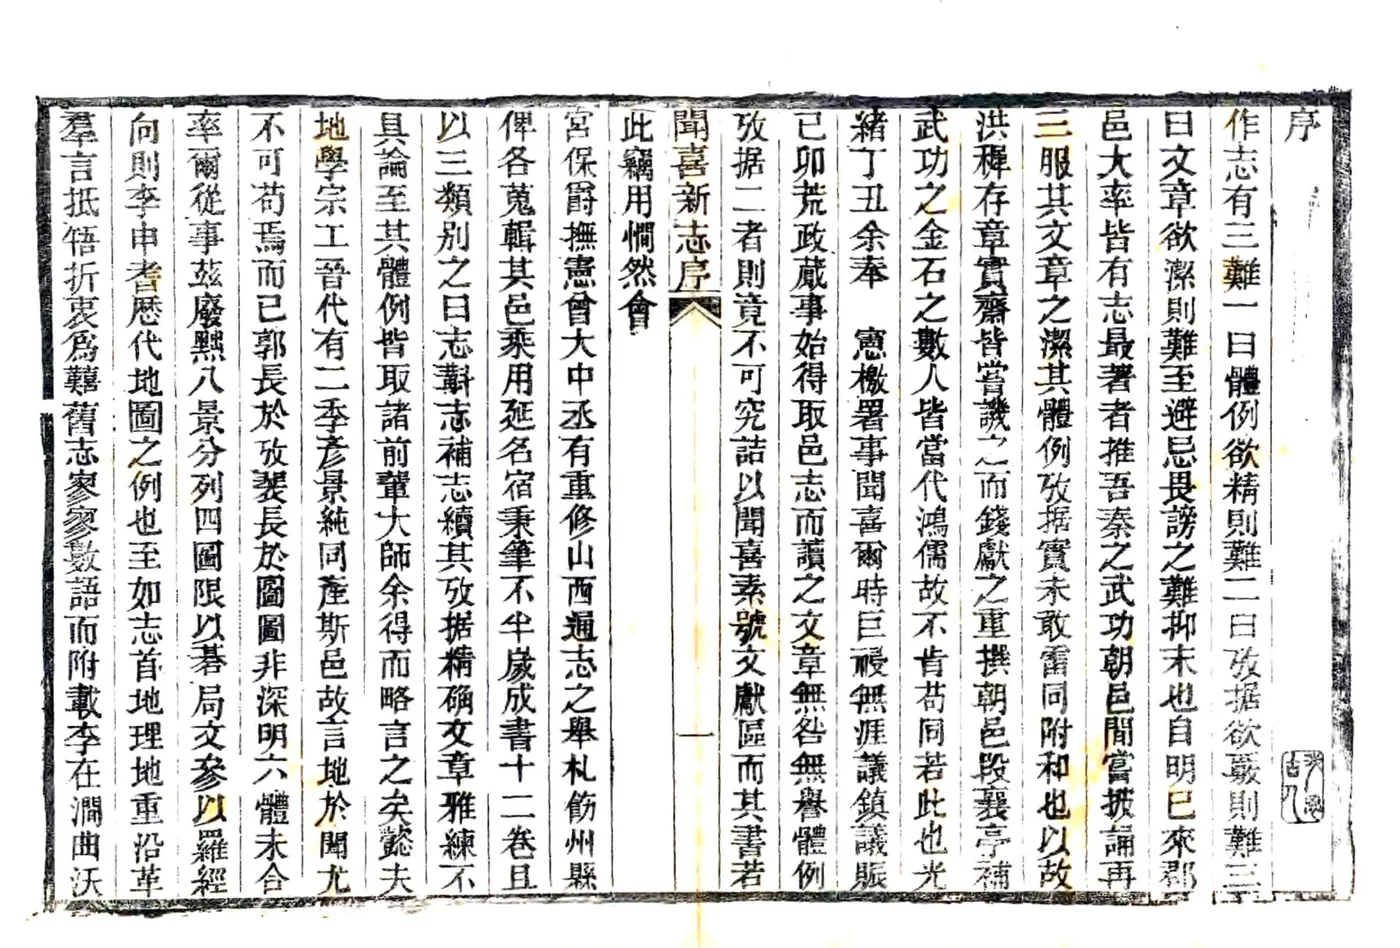 序
作志有三難一曰體例欲精則難二曰攷据欲覈則難三
曰文章欲潔則難至避忌畏謗之難抑末也自明已來郡
邑大率皆有志最著者推吾秦之武功朝邑閒嘗披誦再
三服其文章之潔其體例攷据實未敢雷同附和也以故
洪穉存章實齋皆嘗譏之而錢獻之重撰朝邑段襄亭補
武功之金石之數人皆當代鴻儒故不肯苟同若此也光
緒丁丑余奉　憲檄署事聞喜爾時巨祲無涯議鎮議賑
己卯荒政蕆事始得取邑志而讀之文章無咎無譽體例
攷据二者則竟不可究詰以聞喜素號文獻區而其書若
聞喜新志序
一
此竊用憪然會
宮保爵撫憲曾大中丞有重修山西通志之舉札飭州縣
俾各蒐輯其邑乘用延名宿秉筆不半嵗成書十二卷且
以三類別之曰志斠志補志續其攷据精确文章雅練不
具論至其體例皆取諸前輩大師余得而略言之矣懿夫
地學宗工晉代有二季彦景純同產斯邑故言地於聞尤
不可苟焉而已郭長於攷裴長於圖圖非深明六體未合
率爾從事茲廢黜八景分列四圖限以碁局文參以羅經
向則李申耆歴代地圖之例也至如志首地理地重沿革
羣言抵牾折衷爲囏舊志寥寥數語而附載李在澗曲沃